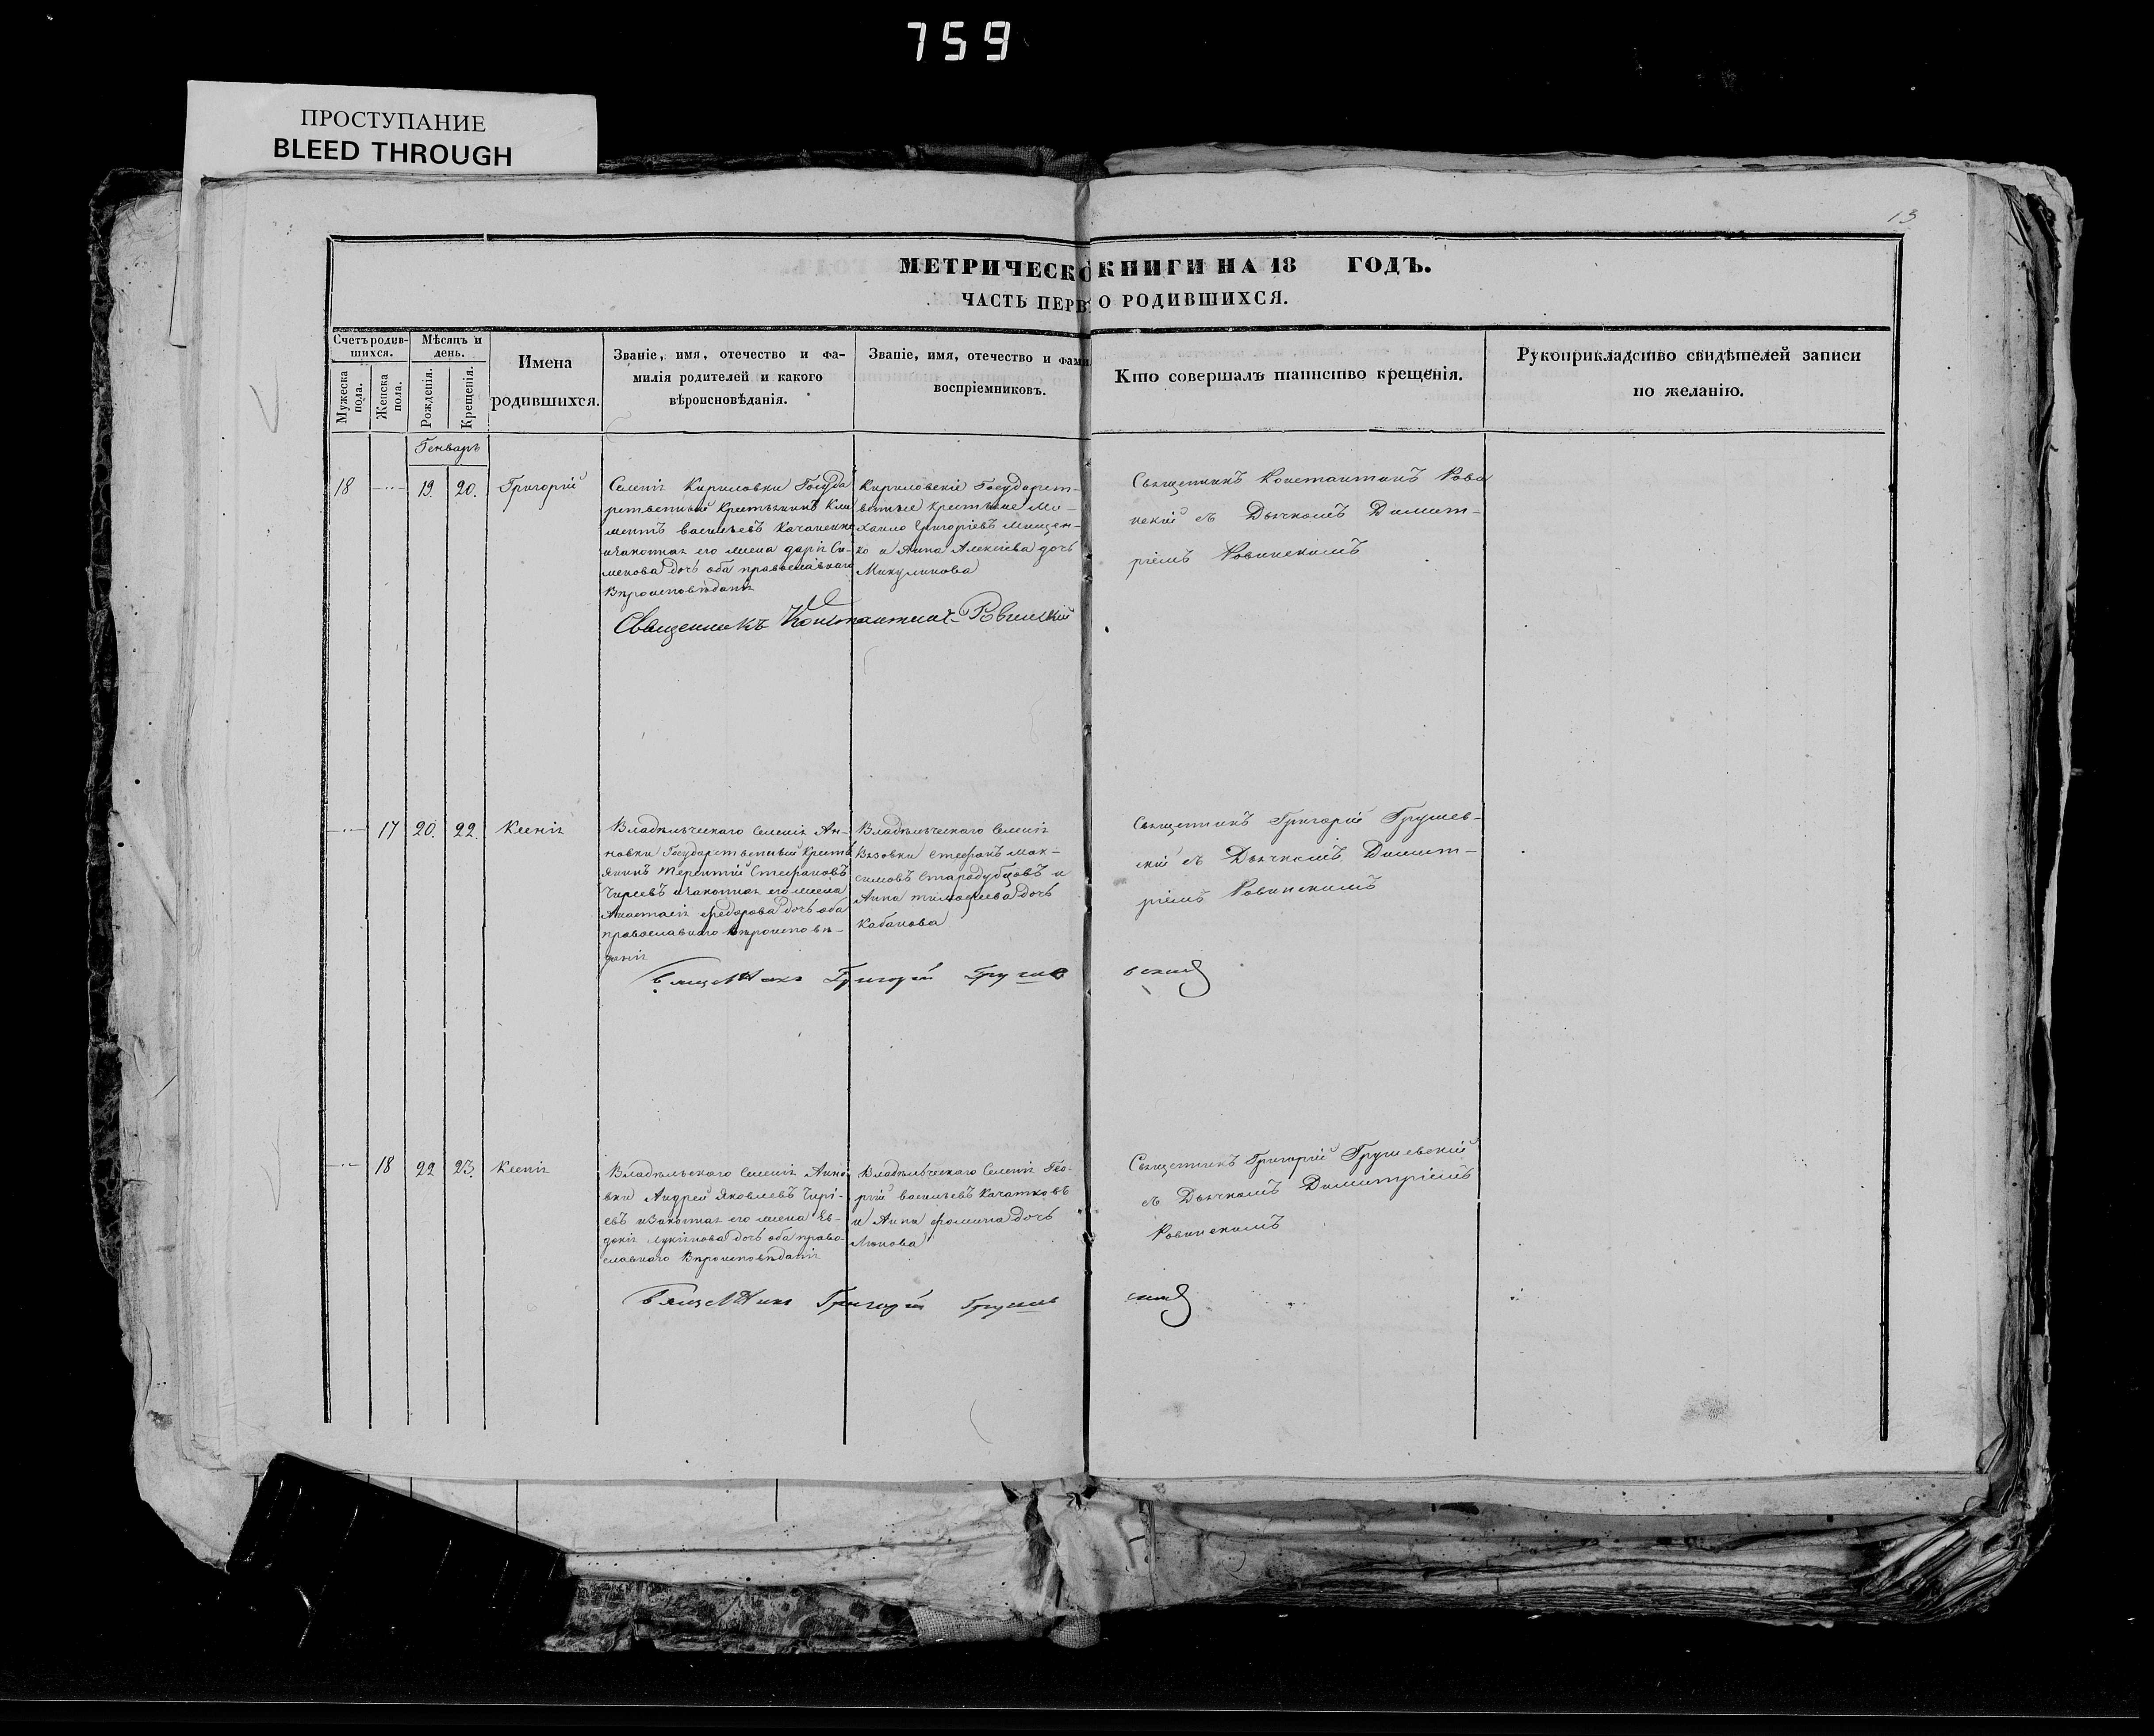 759
ПРОСТУПАНИЕ
BLEED THROUGH
13
МЕТРИЧЕСКО КНИГИ НА 18 ГОДЪ.
ЧАСТЬ ПЕРВ О РОДИВШИХСЯ.
Счетъ родив-
шихся.
Мужеска пола.
Женска пола.
Мѣсяцъ и
день.
Рожденія.
Крещенія.
Имена
родившихся.
Званіе, имя, отечество и фа-
милія родителей и какого
вѣроисновѣданія.
Званіе, имя, отечество и фами
воспріемниковъ.
Кто совершалъ таинство крещенія.
Рукоприкладство свидѣтелей записи
по желанію.
Генваръ
18 19. 20. Григорій
Селенія Кириловки Госуда
рственный Крестьянинъ Кли
ментъ васильевъ Качаненко
изаконная его жена дарія Си-
менова дочь оба православнаго
Вѣроисповѣданія
Кириловскіе Государст-
венные Крестьяне Ми-
хаило Григоріевъ Мищен-
ко и Анна Алексіева дочь
Микулинова
Священникъ Константинъ Рови
нскій съ Дьячкомъ Димит-
ріемъ Ровинскимъ
Священникъ Константинъ Ровинскій
17 20. 22. Ксенія
Владѣльческаго Селенія Ан-
новки Государственный Кресть
янинъ Терентій Стефановъ
Чиреевъ изаконная его жена
Анастасія федорова дочь оба
православнаго Вѣроисповѣ-
данія
Владѣльческаго Селенія
Вязовки Стефанъ Мак-
симовъ Стародубцовъ и
Анна тимофеева дочь
Кабанова
Священникъ Григорій Грушев-
скій съ Дьячкомъ Димит-
ріемъ Ровинскимъ
Священникъ Григорій Грушевскій
18 22 23. Ксенія
Владѣльскаго Селенія Анно
вки Андрей Яковлевъ Чирі-
евъ изаконная его жена Ев-
докія Лукіянова дочь оба право-
славнаго Вѣроисповѣданія
Владѣльческаго Селенія Гео-
ргій васильевъ Качатковъ
и Анна фомина дочь
Священникъ Григорій Грушевскій
съ Дьячкомъ Димитріемъ
Ровинскимъ
Священникъ Григорій Грушевскій